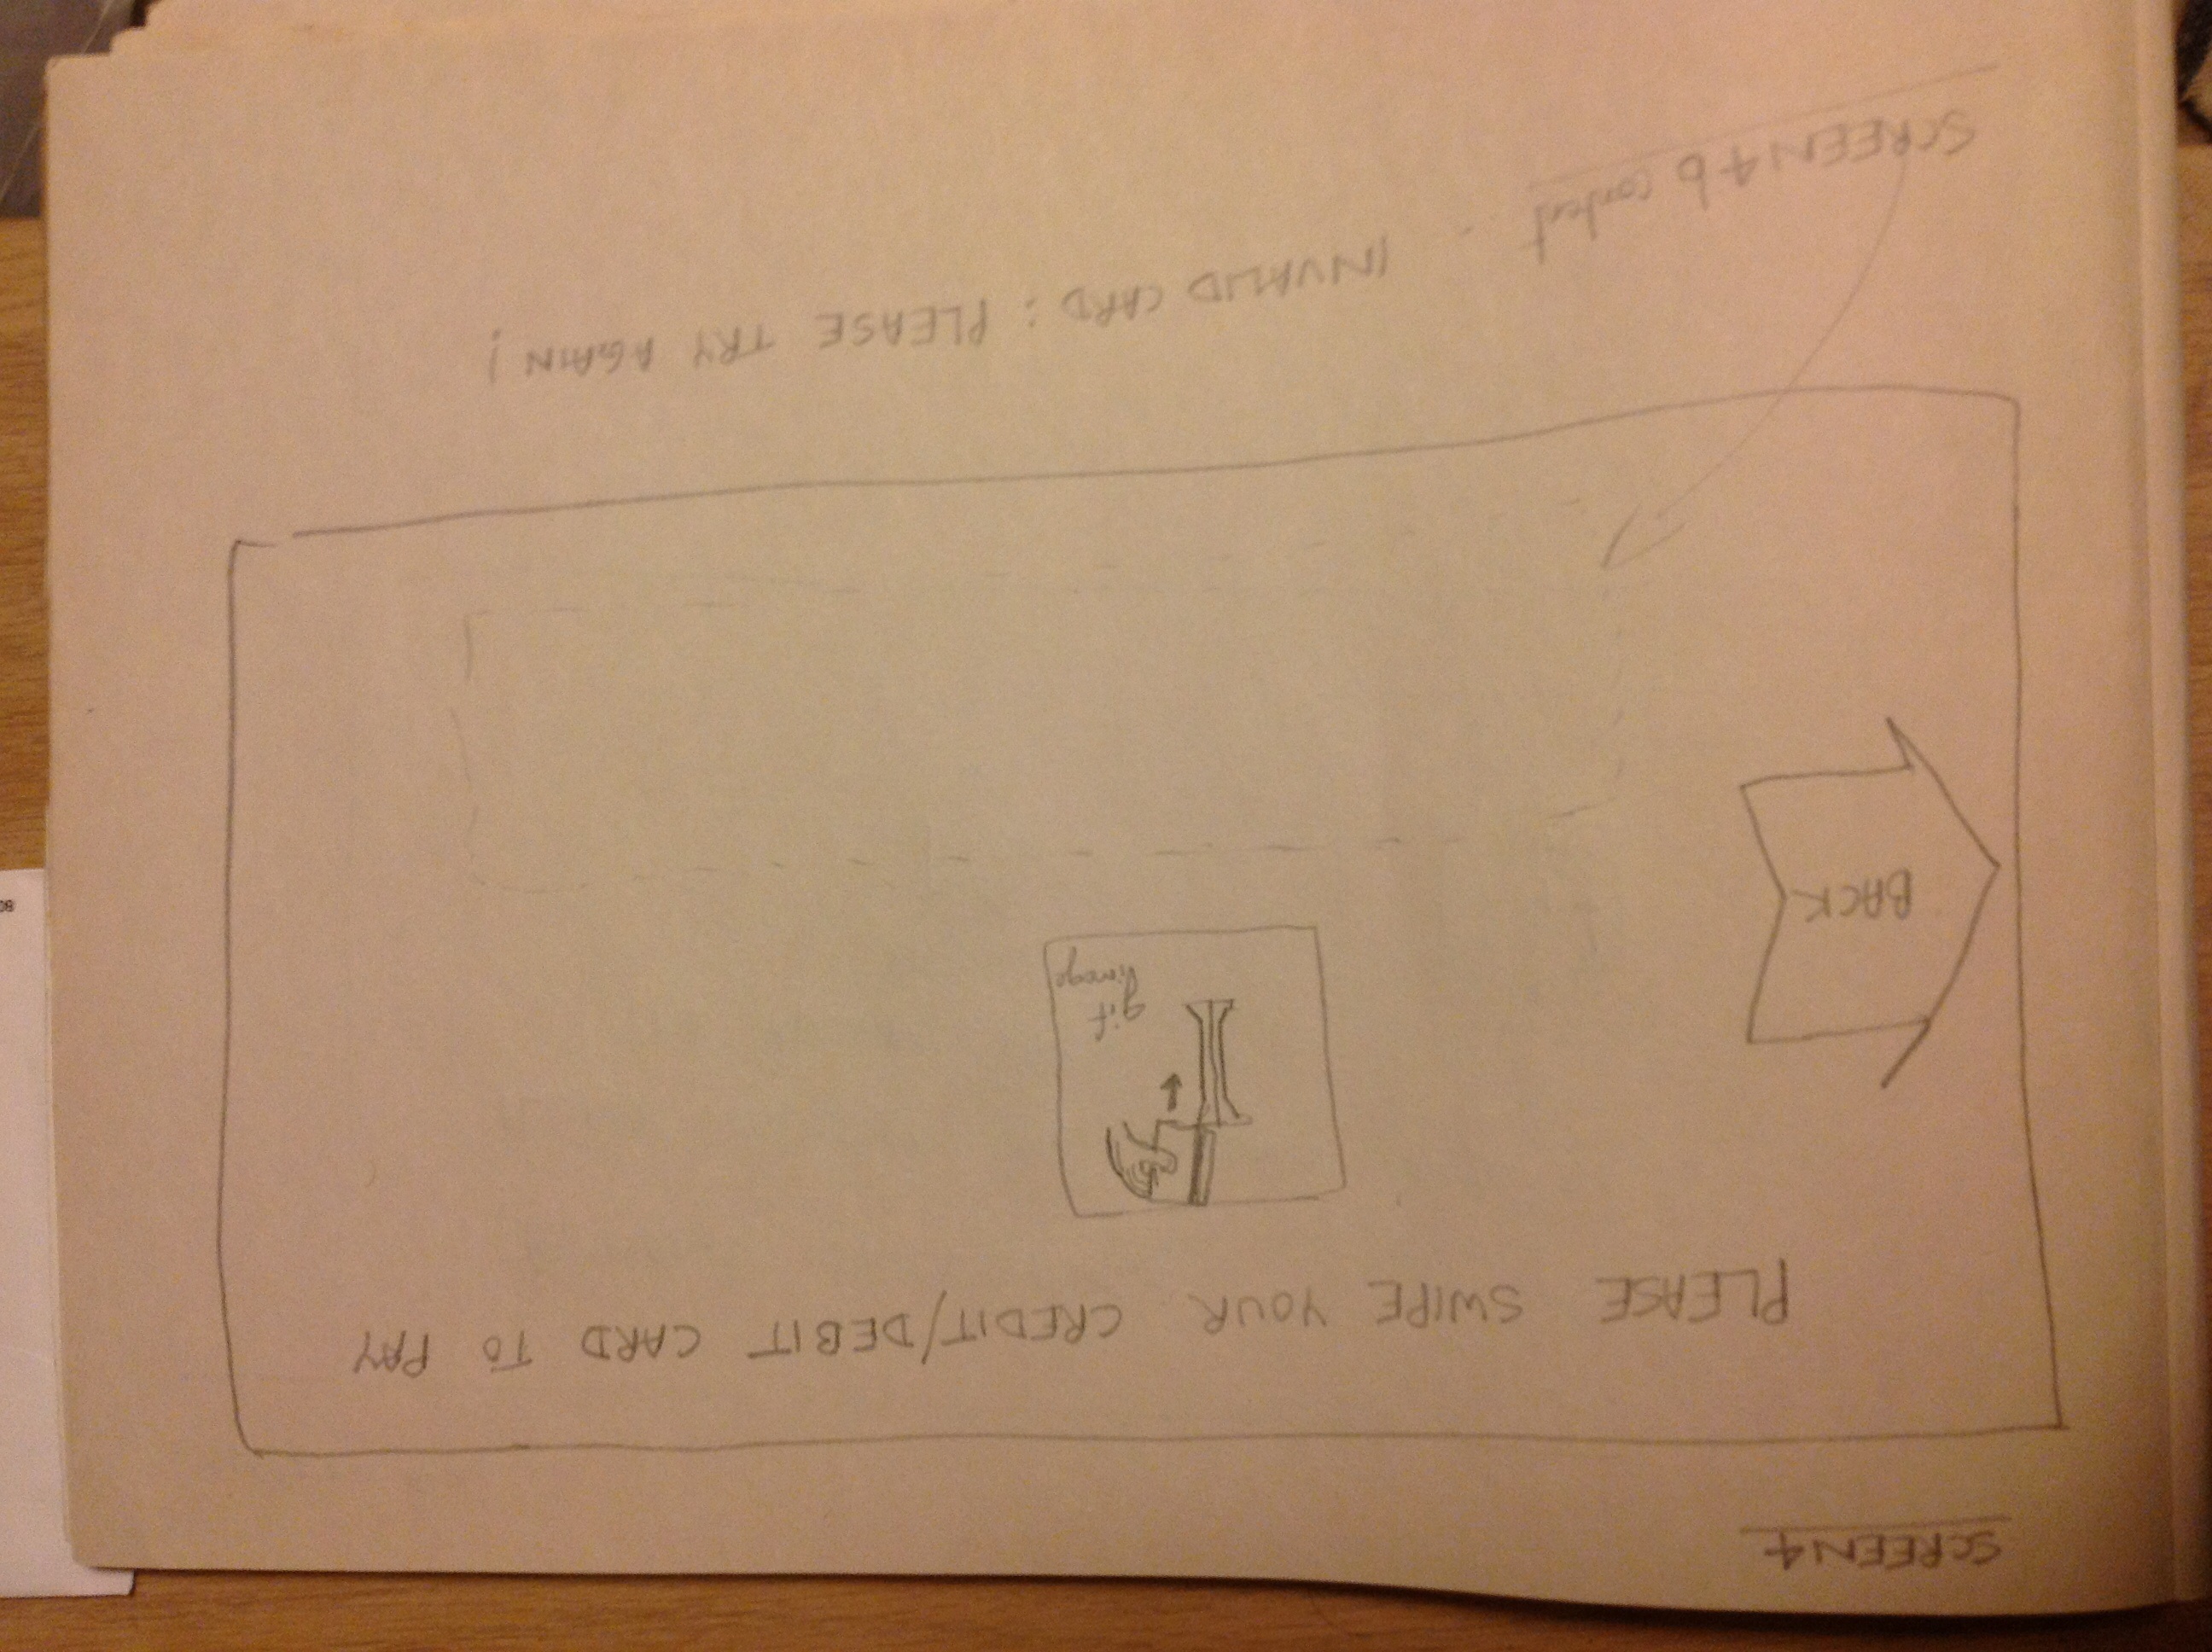 SCREEN4
PLEASE SWIPE YOUR CREDIT/DEBIT CARD TO PAY
gif
image
BACK
SCREEN4b content - INVALID CARD : PLEASE TRY AGAIN!